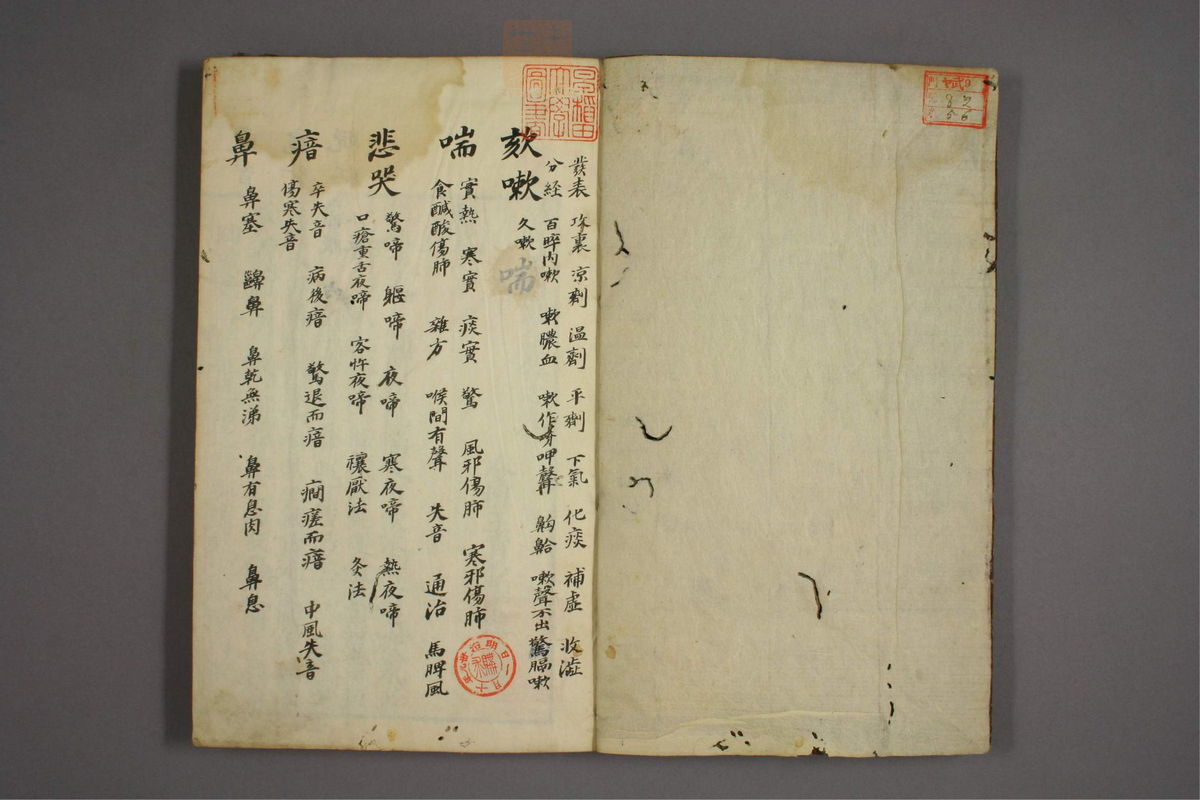 欬嗽
發表 攻裏 涼劑 温劑 平劑 下氣 化痰 補虚 收澁
分経 百晬內嗽 嗽膿血 嗽作呷聲 齁䶎 嗽聲不出 驚膈嗽
久嗽
喘
喘
實熱 寒實 痰實 驚 風邪傷肺 寒邪傷肺
食鹹酸傷肺 雜方 喉間有聲 失音 通治 馬脾風
悲哭
驚啼 軀啼 夜啼 寒夜啼 熱夜啼
口瘡重舌夜啼 客忤夜啼 禳厭法 灸法
瘖
卒失音 病後瘖 驚退而瘖 癇瘥而瘖 中風失音
傷寒失音
鼻
鼻塞 齆鼻 鼻乾無涕 鼻有息肉 鼻息